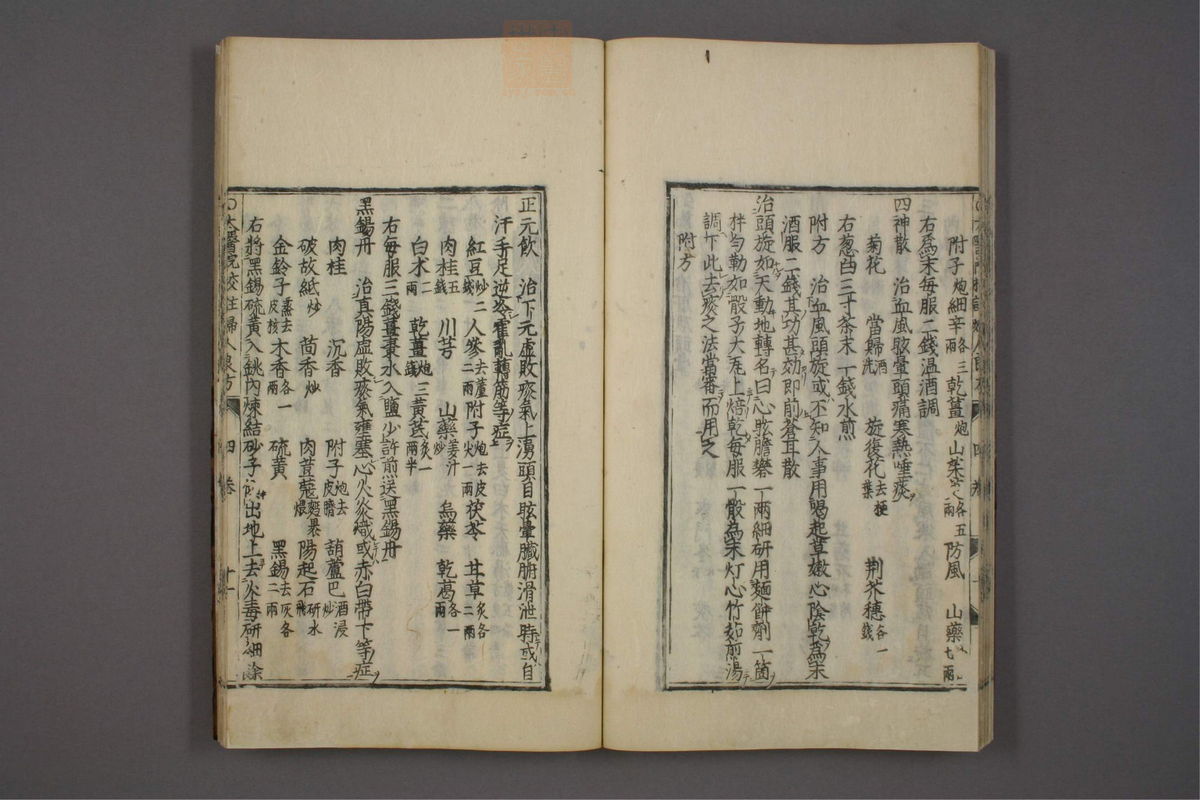 附子炮細辛各三兩乾薑炮山茱萸各五兩防風山藥七兩
右為末每服二錢溫酒調
四神散治血風眩暈頭痛寒熱唾痰
菊花當歸酒洗旋復花去梗葉荆芥穗各一錢
右葱白三寸茶末一錢水煎
附方治血風頭旋或不知人事用喝起草嫩心陰乾為末
酒服二錢其功甚効即前蒼耳散
治頭旋如天動地轉名曰心眩膽礬一兩細研用麵餅劑一箇
拌勻勒如骰子大瓦上焙乾每服一骰為末灯心竹茹煎湯
調下此去痰之法當審而用之
附方
正元飲治下元虛敗痰氣上湯頭目眩暈臟腑滑泄時或自
汗手足逆冷霍亂轉筋等症
紅豆炒二錢人參去蘆二兩附子炮去皮尖一兩茯苓甘草炙各二兩
肉桂五錢川芎山藥姜汁炒烏藥乾葛各一兩
白朮二兩乾薑炮三錢黃芪炙一兩半
右每服三錢薑棗水入鹽少許煎送黑錫丹
黑錫丹治真陽虛敗痰氣壅塞心火炎熾或赤白帶下等症
肉桂沉香附子炮去皮臍葫蘆巴酒浸炒
破故紙炒茴香炒肉荳蔻麪裹煨陽起石研水飛
金鈴子蒸去皮核木香各一兩硫黃黑錫去灰各二兩
右將黑錫硫黃入銚內煉結砂子出地上去火毒研細除
太醫院校註婦人良方
四卷
十一